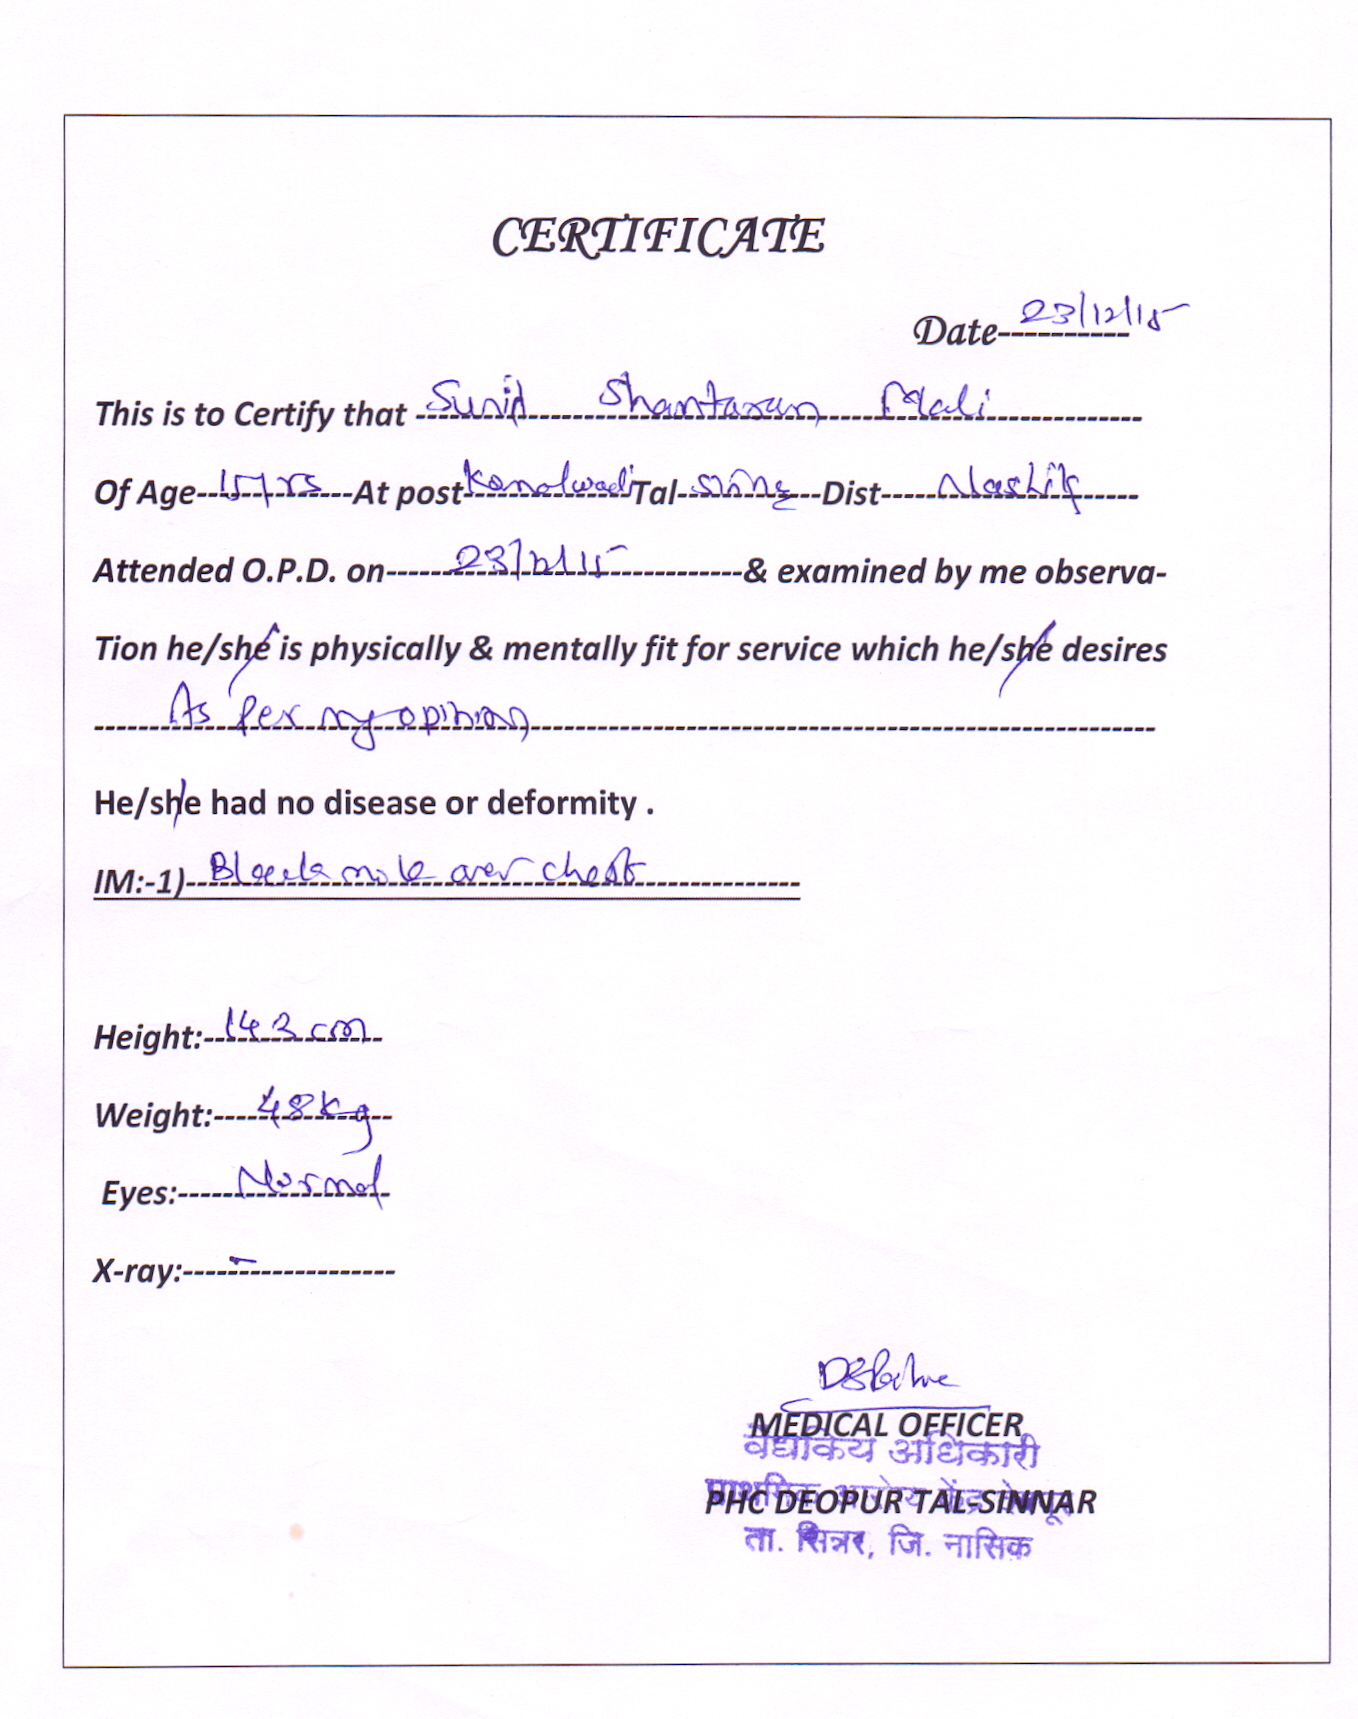 CERTIFICATE
Date----------23/12/15
This is to Certify that Sunil Shantaram Mali
Of Age--15yrs----At post Tal- Dist-----Nashik
Attended O.P.D. on------23/12/15------& examined by me observa-
Tion he/she is physically & mentally fit for service which he/she desires
As Per my opinion
He/she had no disease or deformity .
IM:-1)--Black mole over chest
Height:--143 cm
Weight:----48kg
Eyes:-----Normal
X-ray:-----–
MEDICAL OFFICER
वैद्यकिय अधिकारी
PHC DEOPUR TAL-SINNAR
ता. सिन्नर, जि. नासिक